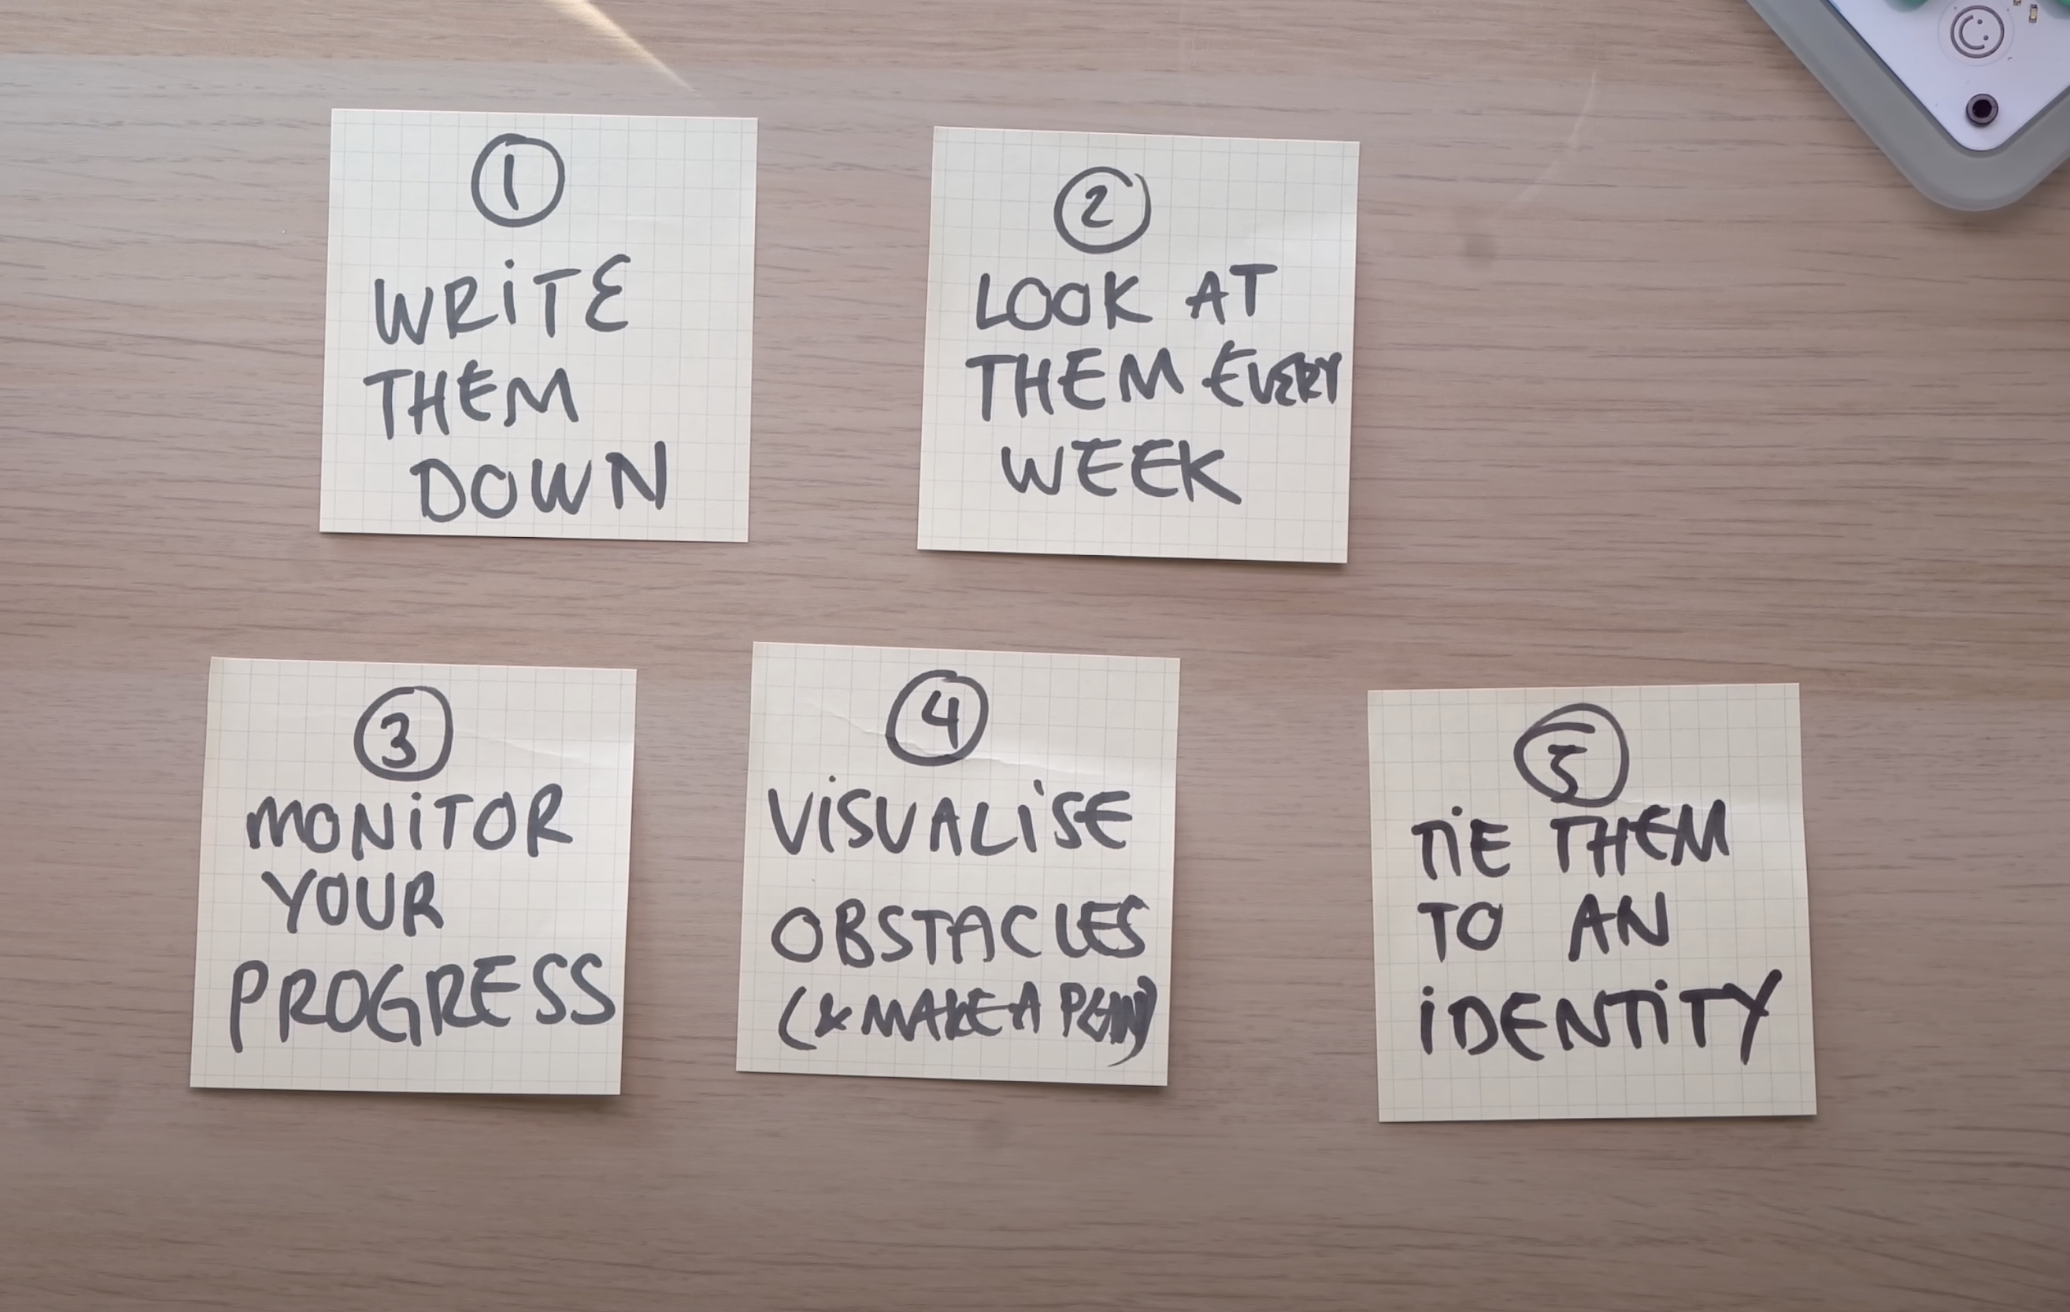 1
WRITE
THEM
DOWN
2
LOOK AT
THEM EVERY
WEEK
3
MONITOR
YOUR
PROGRESS
4
VISUALISE
OBSTACLES
(& MAKE A PLAN)
5
TIE THEM
TO AN
IDENTITY